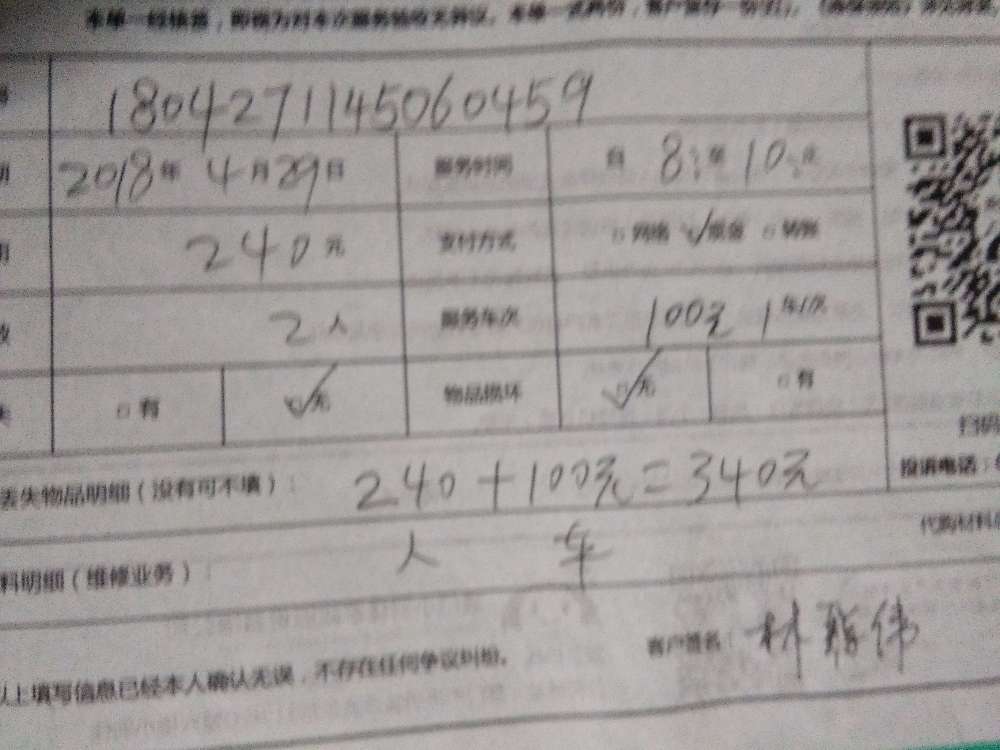 本单一经签署，即视为对本次服务验收无异议。本单一式两份，客户留存一份
180427114506​0459
2018年 4月29日 服务时间 自 8:至 10:
240元 支付方式 网络 现金 转账
2人 服务车次 100元 1车/次
有 无 物品损坏 无 有
扫码
丢失物品明细（没有可不填）： 240+100元=340元
投诉电话：
代购材料
料明细（维修业务）： 人 车
以上填写信息已经本人确认无误，不存在任何争议纠纷。 客户签名：林 伟